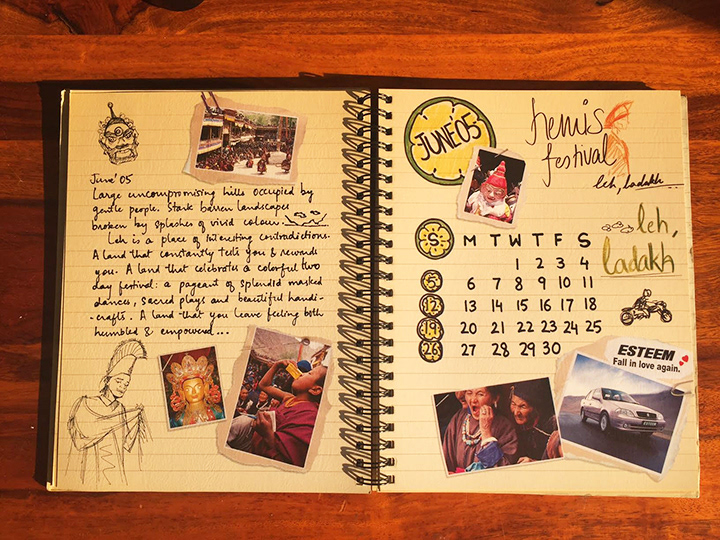 June'05
Large uncompromising hills occupied by
gentle people. Stark barren landscapes
broken by splashes of vivid colour.
Leh is a place of interesting contradictions.
A land that constantly tests you & rewards
you. A land that celebrates a colorful two
day festival: a pageant of splendid masked
dances, sacred plays and beautiful handi-
-crafts. A land that you leave feeling both
humbled & empowered...
JUNE'05
hemis
festival
leh, ladakh...
leh,
ladakh
S M T W T F S
1 2 3 4
5 6 7 8 9 10 11
12 13 14 15 16 17 18
19 20 21 22 23 24 25
26 27 28 29 30
ESTEEM
Fall in love again.
ESTEEM